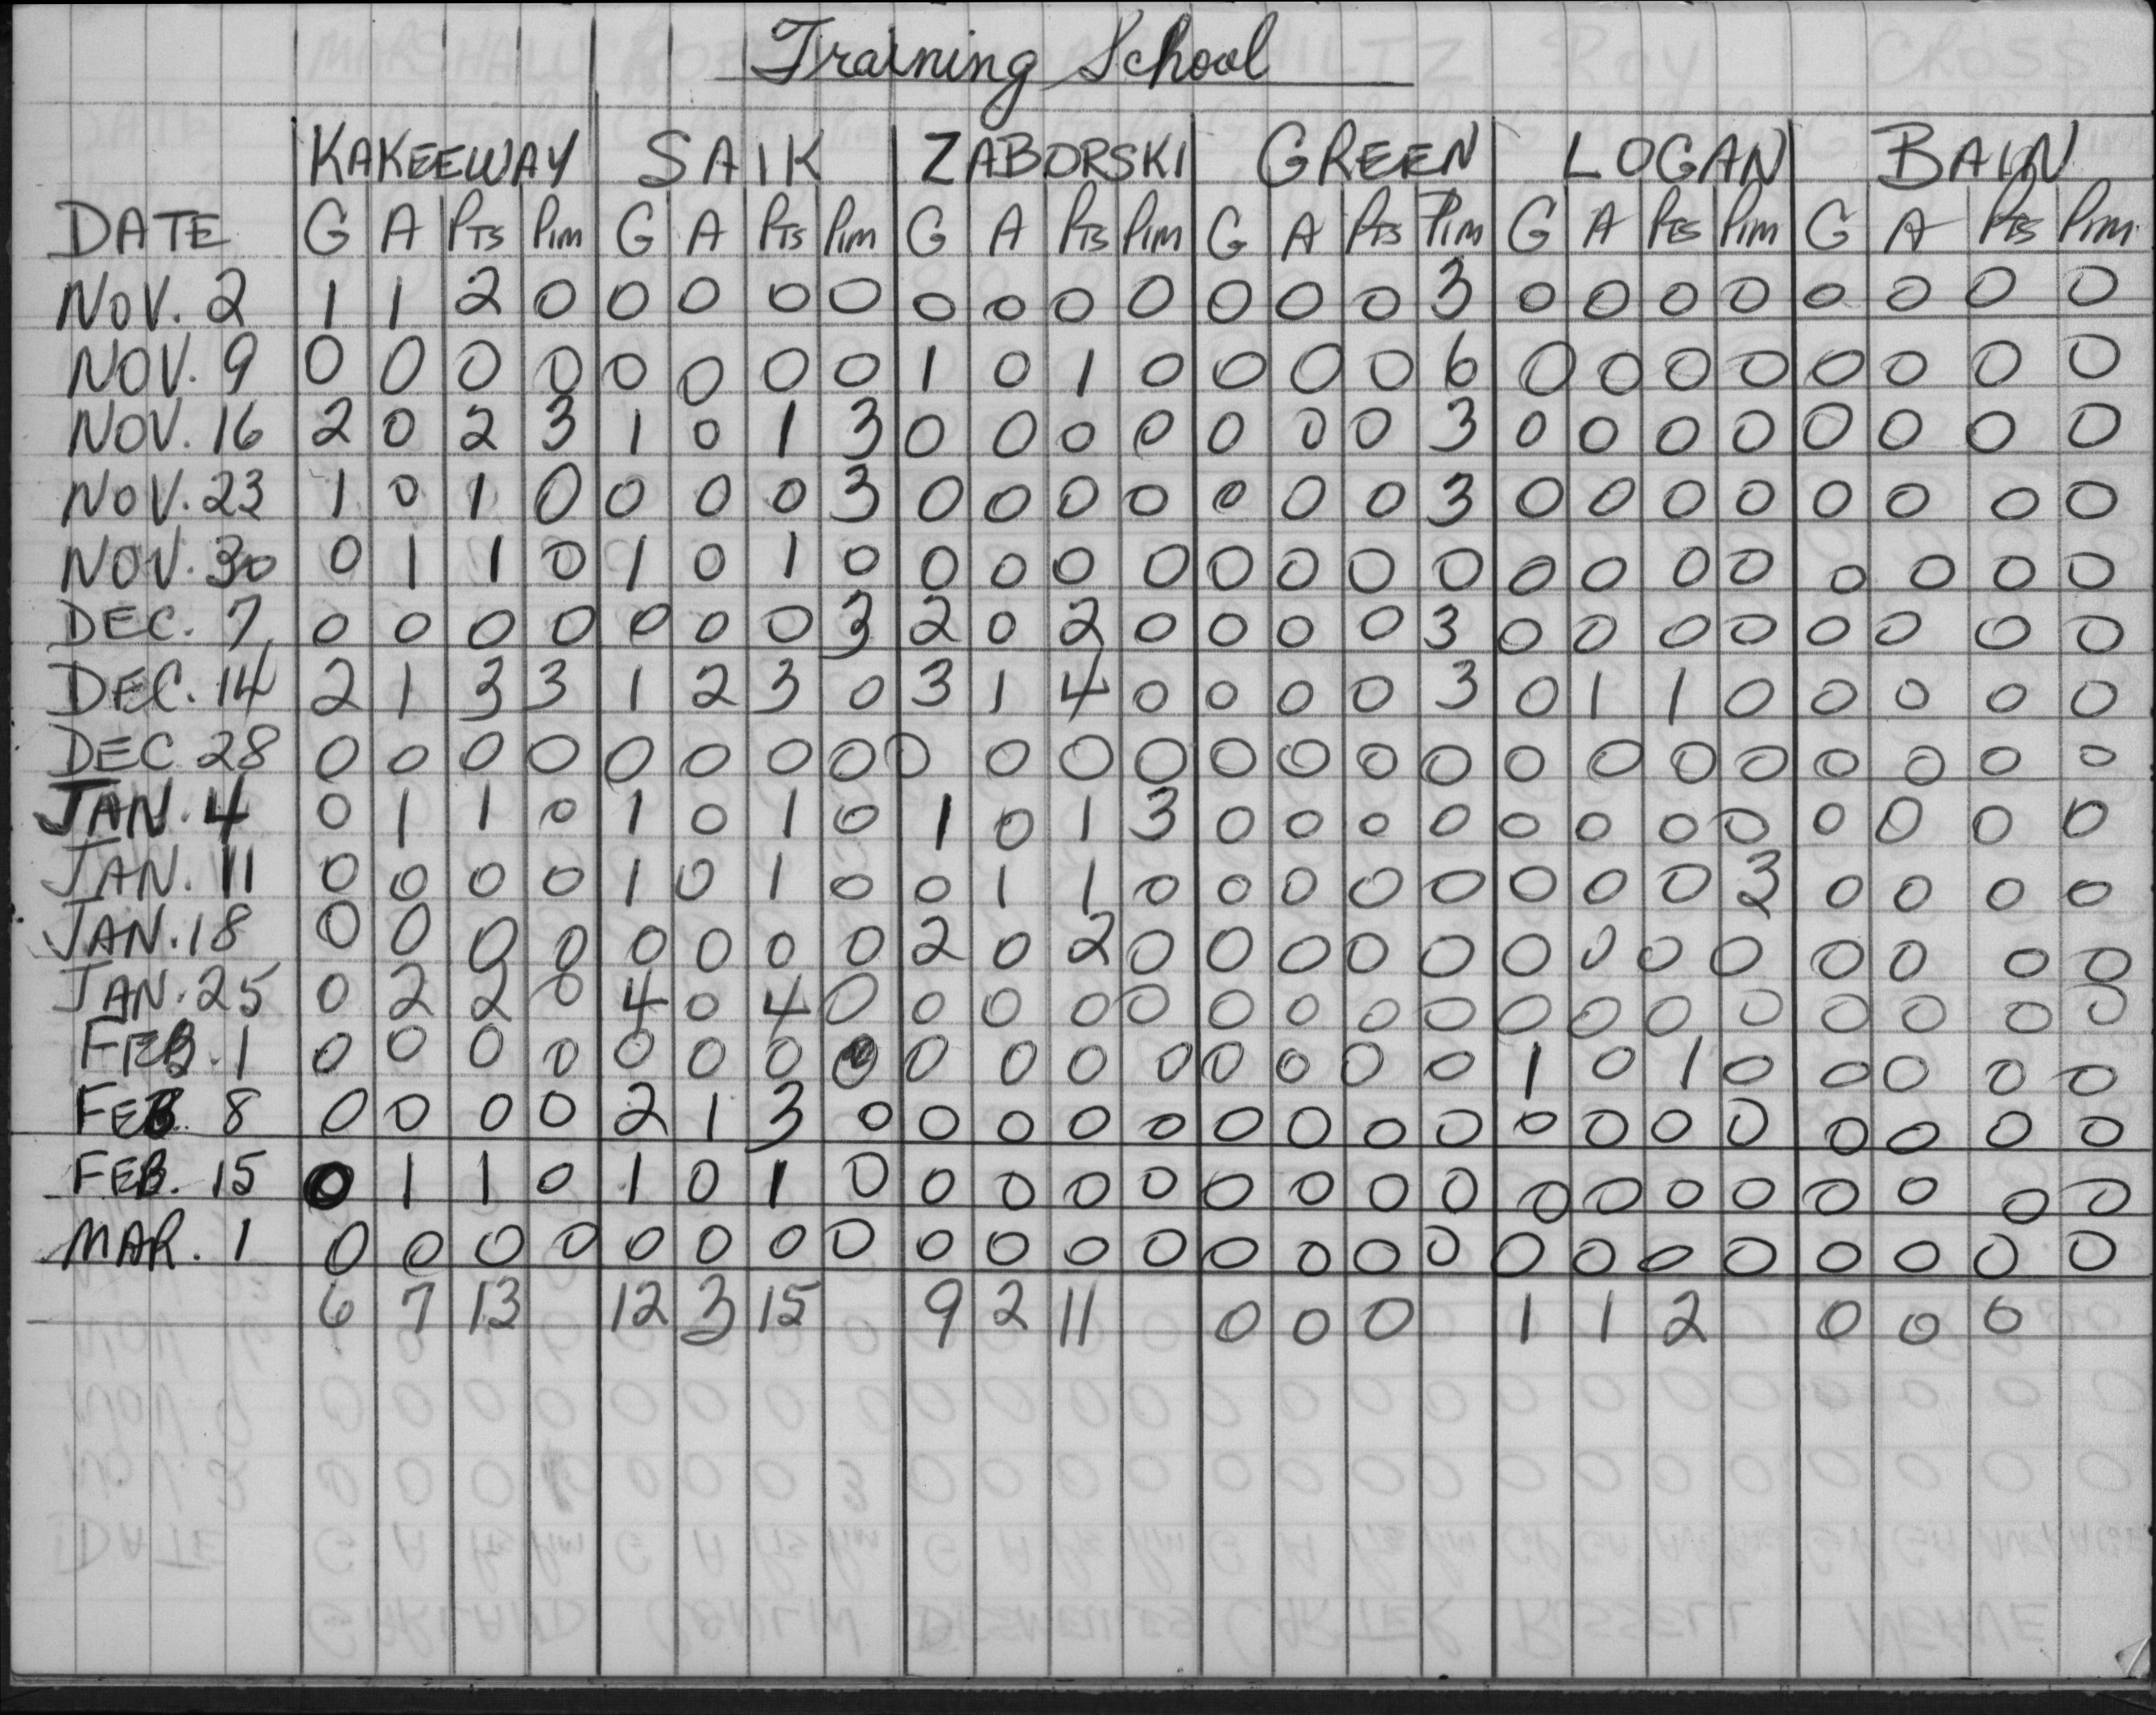 Training School
KAKEEWAY SAIK ZABORSKI GREEN LOGAN BAIN
DATE G A PTS PIM G A PTS PIM G A PTS PIM G A PTS PIM G A PTS PIM G A PTS PIM
NOV. 2 1 1 2 0 0 0 0 0 0 0 0 0 0 0 0 3 0 0 0 0 0 0 0 0
NOV. 9 0 0 0 0 0 0 0 0 1 0 1 0 0 0 0 6 0 0 0 0 0 0 0 0
NOV. 16 2 0 2 3 1 0 1 3 0 0 0 0 0 0 0 3 0 0 0 0 0 0 0 0
NOV. 23 1 0 1 0 0 0 0 3 0 0 0 0 0 0 0 3 0 0 0 0 0 0 0 0
NOV. 30 0 1 1 0 1 0 1 0 0 0 0 0 0 0 0 0 0 0 0 0 0 0 0 0
DEC. 7 0 0 0 0 0 0 0 3 2 0 2 0 0 0 0 3 0 0 0 0 0 0 0 0
DEC. 14 2 1 3 3 1 2 3 0 3 1 4 0 0 0 0 3 0 1 1 0 0 0 0 0
DEC 28 0 0 0 0 0 0 0 0 0 0 0 0 0 0 0 0 0 0 0 0 0 0 0 0
JAN. 4 0 1 1 0 1 0 1 0 1 0 1 3 0 0 0 0 0 0 0 0 0 0 0 0
JAN. 11 0 0 0 0 1 0 1 0 0 1 1 0 0 0 0 0 0 0 0 3 0 0 0 0
JAN. 18 0 0 0 0 0 0 0 0 2 0 2 0 0 0 0 0 0 0 0 0 0 0 0 0
JAN. 25 0 2 2 0 4 0 4 0 0 0 0 0 0 0 0 0 0 0 0 0 0 0 0 0
FEB. 1 0 0 0 0 0 0 0 0 0 0 0 0 0 0 0 0 1 0 1 0 0 0 0 0
FEB. 8 0 0 0 0 2 1 3 0 0 0 0 0 0 0 0 0 0 0 0 0 0 0 0 0
FEB. 15 0 1 1 0 1 0 1 0 0 0 0 0 0 0 0 0 0 0 0 0 0 0 0 0
MAR. 1 0 0 0 0 0 0 0 0 0 0 0 0 0 0 0 0 0 0 0 0 0 0 0 0
6 7 13 12 3 15 9 2 11 0 0 0 1 1 2 0 0 0